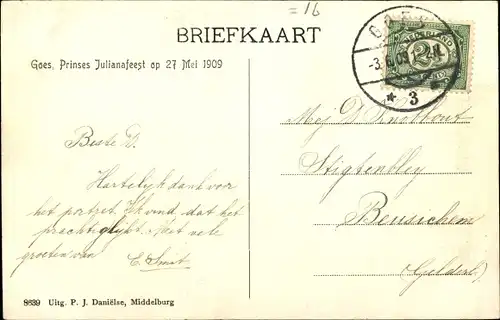 =16
BRIEFKAART
Goes, Prinses Julianafeest op 27 Mei 1909
GOES
-3.6.09
* 3
NEDERLAND
2½
CENT
Mej D Knobbout
Stigtenbley
Beusichem
(Gelderl.)
Beste D.
Hartelijk dank voor
het portret. Ik vind dat het
prachtig lijkt. Met vele
groeten van
C. Smit
8639 Uitg. P. J. Daniëlse, Middelburg